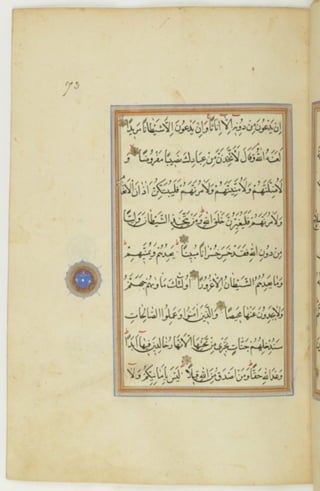 ٧٣
إِن يَدْعُونَ مِن دُونِهِ إِلَّا إِنَاثًا وَإِن يَدْعُونَ إِلَّا شَيْطَانًا مَرِيدًا
لَعَنَهُ اللَّهُ وَقَالَ لَأَتَّخِذَنَّ مِنْ عِبَادِكَ نَصِيبًا مَفْرُوضًا وَ
لَأُضِلَّنَّهُمْ وَلَأُمَنِّيَنَّهُمْ وَلَآمُرَنَّهُمْ فَلَيُبَتِّكُنَّ آذَانَ الْأَنْعَامِ
وَلَآمُرَنَّهُمْ فَلَيُغَيِّرُنَّ خَلْقَ اللَّهِ وَمَن يَتَّخِذِ الشَّيْطَانَ وَلِيًّا
مِن دُونِ اللَّهِ فَقَدْ خَسِرَ خُسْرَانًا مُبِينًا يَعِدُهُمْ وَيُمَنِّيهِمْ
وَمَا يَعِدُهُمُ الشَّيْطَانُ إِلَّا غُرُورًا أُولَئِكَ مَأْوَاهُمْ جَهَنَّمُ
وَلَا يَجِدُونَ عَنْهَا مَحِيصًا وَالَّذِينَ آمَنُوا وَعَمِلُوا الصَّالِحَاتِ
سَنُدْخِلُهُمْ جَنَّاتٍ تَجْرِي مِن تَحْتِهَا الْأَنْهَارُ خَالِدِينَ فِيهَا أَبَدًا
وَعْدَ اللَّهِ حَقًّا وَمَنْ أَصْدَقُ مِنَ اللَّهِ قِيلًا لَيْسَ بِأَمَانِيِّكُمْ وَلَا